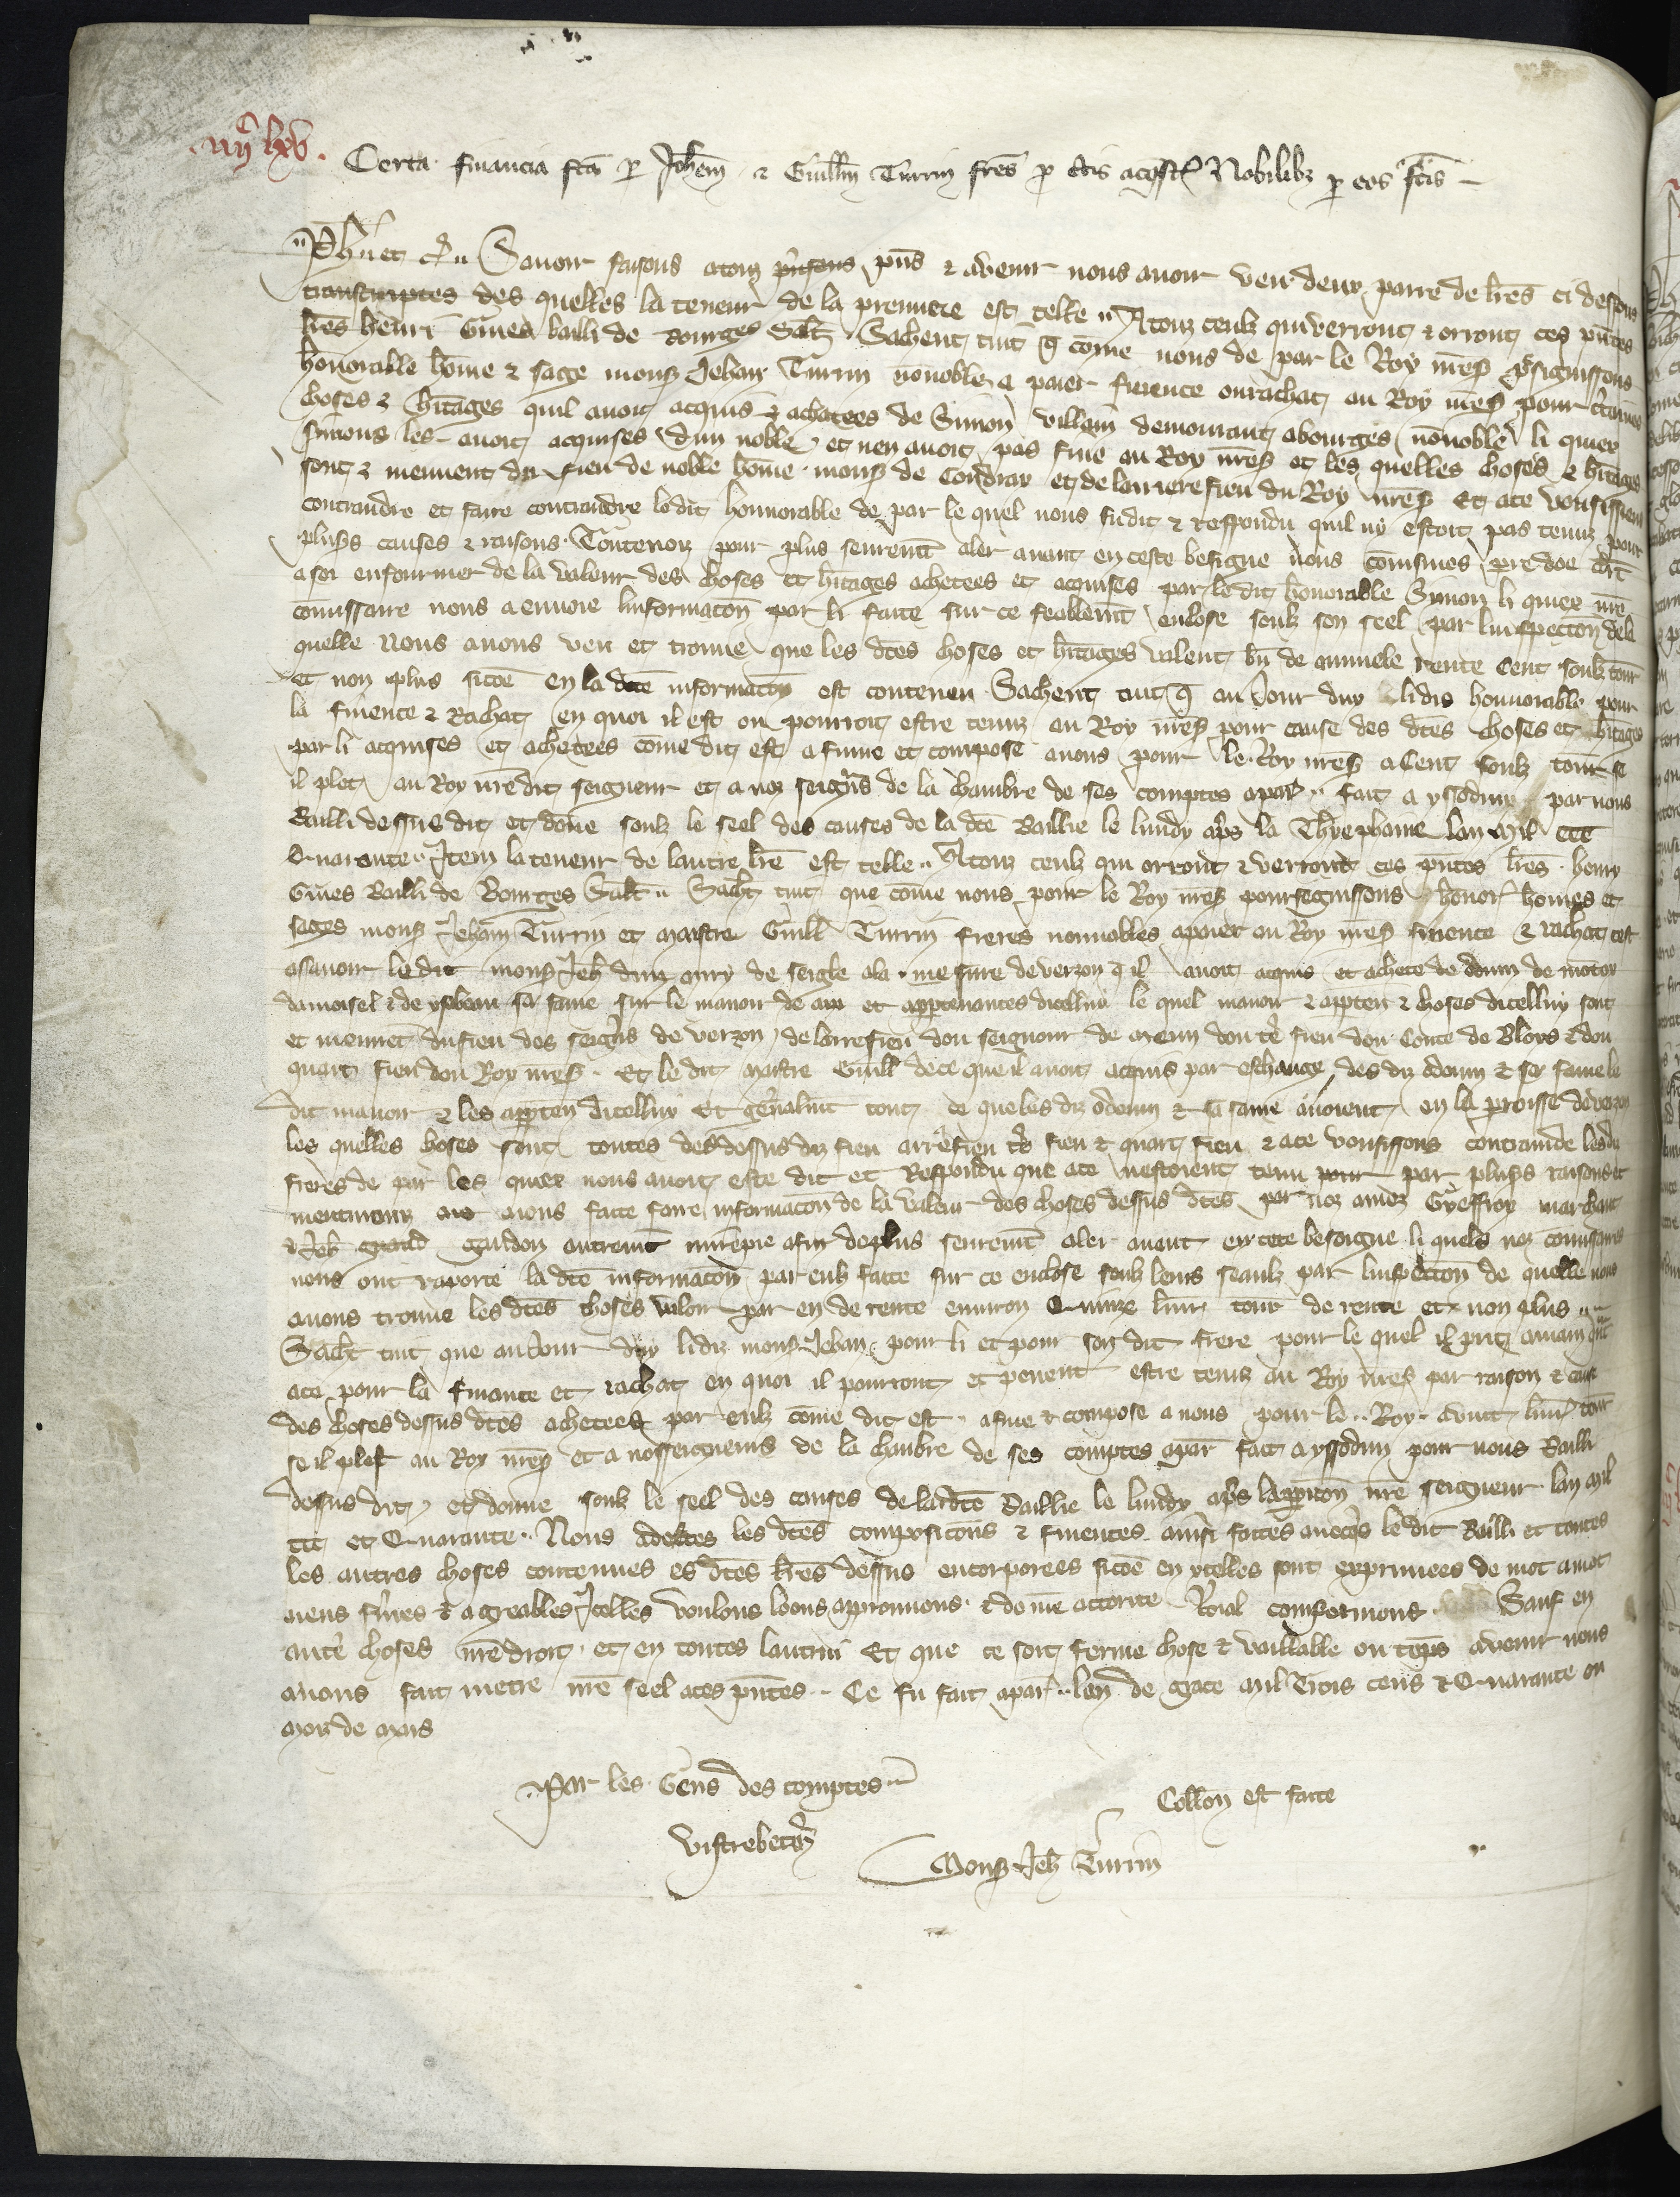 iiijc lxv.
Certa financia fca per Johem & Guillm Turin fres pro ctis acqstz Nobilibz per eos fcis
Phe etc. Savoir faisons a touz pns & avenir nous avoir veu deux paire de lres ci dessous
transcriptes des quelles la teneur de la premiere est telle. A touz ceulz qui verront & orront ces pntes
lres henri Gines bailli de Bourges Salt. Sachent tuit q come nous de par le Roy nres porsiguissons
honorable home & sage mons Jehan Turin nonnoble a paier finence ou rachat au Roy nres pour ctaines
choses & hitages quil avoit acquis & achatees de Simon villain demourant a bourges nonnoble li quiex
Simons les avoit acquises dun noble et nen avoit pas fine au Roy nres et les quelles choses & hitages
sont & meuvent du fieu de noble home mons de Coudray et de larriere fieu du Roy nres Et a ce vousissiens
contraindre et faire contraindre le dit honnorable de par le quel nous fu dit & respondu quil ny estoit pas tenuz pour
pluss causes & raisons. Toutevoiz pour plus seurement aler avant en ceste besigne nous comismes
a soi enfourmer de la valeur des choses et hitages achetees et acquises par le dit honorable Simon li quiex nre
commissaire nous a envoie linformacon par li faite sur ce feablemt enclose soulz son seel par linspection de la
quelle nous avons veu et trouve que les dtes choses et hitages valent bn de annuele rente Cent soulz tour
et non plus sicoe en la dcte informacon est contenu Sachent tuit q au Jour duy lidis honnorable pour
la finence & Rachat en quoi il est ou pourroit estre tenuz au Roy nres pour cause des dtes choses et hitages
par li acquises et achetees come dit est a fine et compose a nous pour le Roy nres a Cent soulz tour se
il plet au Roy nre dit seigneur et a noz seigrs de la chambre de ses comptes a par. fait a yssodun par nous
Bailli dessus dit et done soulz le seel des causes de la dte Baillie le lundy aps la Thyephaine lan Mil ccc
Quarante. Item la teneur de lautre lre est telle. A touz ceulz qui orront & verront ces pntes lres henry
Gines Bailli de Bourges Salt. Sacht tuit que come nous pour le Roy nres pourseguissons honor homes et
sages mons Jehan Turin et maistre Guill Turin freres nonnobles a paier au Roy nres finence & rachat cest
asavoir le dit mons Jeh dun muy de seigle a la mesure de verzon q il avoit acquis et achete de odoun de
damoisel & de ysabeau sa fame sur le manoir de et appartenances dicelluy le quel manoir & apparten & choses dicelluy sont
et meuvet du fieu des seigrs de verzon de larrefieu dou seigneur de dou tes fieu dou Conte de Bloys & dou
quart fieu dou Roy nres. Et le dit maistre Guill de ce que il avoit acquis par eschange des diz odoun & sa fame le
dit manoir & les apparten dicelluy Et genalmt tout ce que les diz odoun & sa fame avoient en la proisse de verzon
les quelles choses sont toutes des dessus diz fieu arrefieu tes fieu & quart fieu & a ce vousissons contraindre les diz
freres de par les quiex nous avoit este dit et Respondu que a ce nestoient tenu par pluss raisons et
avons faite faire informacon de la valeur des choses dessus dtes par noz amez Gyeffroy marchant
& Jeh gaudon autremt afin de plus seuremt aler avant en cete besoigne li quels noz commissaires
nous ont raporte la dte informacon par eulz faite sur ce enclose soulz leurs seaulz par linspection de quelle nous
avons trouve les dtes choses valoir par en de rente environ Quinze livr tour de rente et non plus
Sacht tuit que au Jour duy lidiz mons Jehan pour li et pour son dit frere pour le quel il prit
a ce pour la finance et rachat en quoi il pourront et pevent estre tenuz au Roy nres par raison & cause
des choses dessus dtes achetees par eulz come dit est a fine & compose a nous pour le Roy a vint livr tour
se il plest au Roy nres et a nosseigneurs de la chambre de ses comptes a par fait a yssodun par nous Bailli
dessus dit et donne soulz le seel des causes de la dte Baillie le lundy aps lapparicon nre seigneur lan mil
ccc et Quarante. Nous adectes les dtes composicons & finences ainsi faites avecqs le dit Bailli et toutes
les autres choses contenues es dtes lres dessus encorporees sicoe en ycelles sont exprimees de mot a mot
aiens fmes & agreables Icelles voulons loons approuvons & de nre actorite Roial confermons Sauf en
autes choses nre droit et en toutes lautrui Et que ce soit ferme chose & vaillable ou temps avenir nous
avons fait metre nre seel a ces pntes. Ce fu fait a par. lan de grace Mil Trois cens & Quarante ou
mois de mars
Par les Gens des comptes
vistrebec
Collon est faite
Mons Jeh Turin